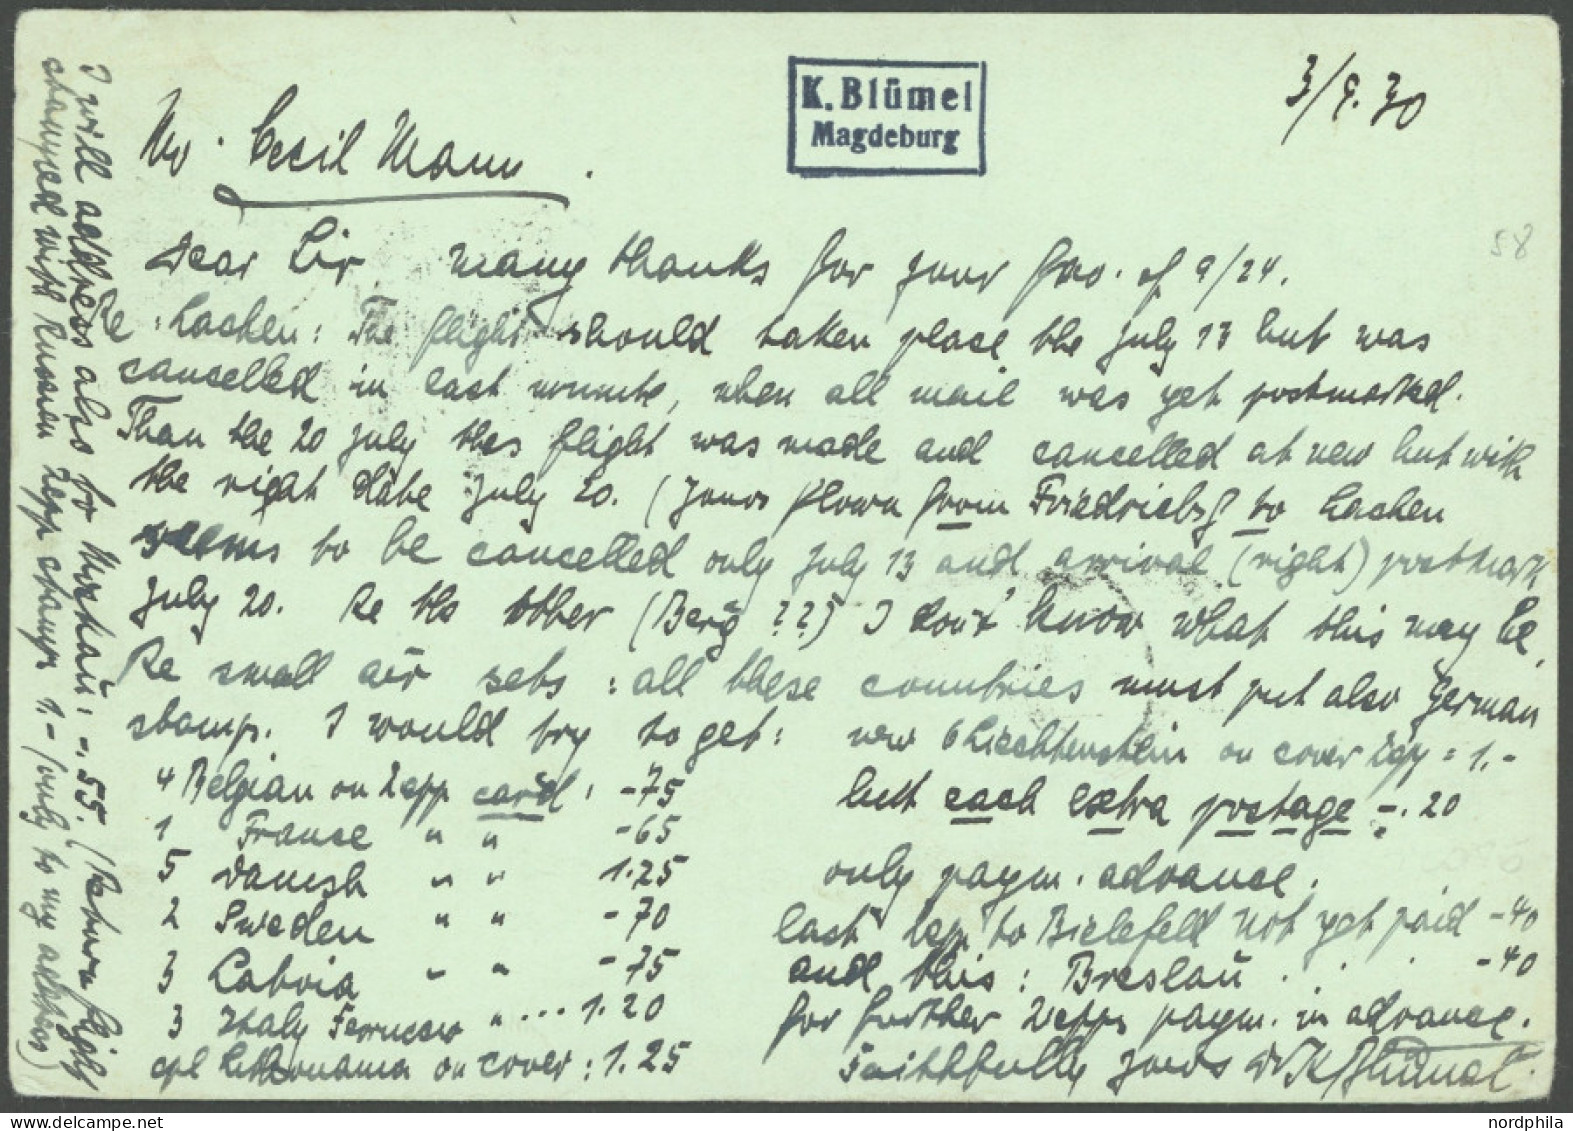 K. Blümel
Magdeburg
3/9.30
Mr. Cecil Mann.
Dear Sir many thanks for your fav. of 9/24.
Re: Lachen: The flight should taken place the July 13 but was
cancelled in last minute, when all mail was yet postmarked.
Than the 20 July thes flight was made and cancelled at new but with
the right date July 20. (Yours flown from Friedrichsf to Lachen
seems to be cancelled only July 13 and arrival (right) postmark
July 20. Re the other (Berg ??) I don't know what this may be,
Re small air sets: all these countries must put also German
stamp. I would try to get:
4 Belgian on Zepp card: -75
1 France " " -65
5 Danish " " 1.25
2 Sweden " " -70
3 Latvia " " -75
3 Italy Ferrucco " ... 1.20
cpl Lithouania on cover: 1.25
new 6 Liechtenstein on cover = 1.-
but each extra postage -.20
only paym. advance.
last Zepp to Bielefeld not yet paid -40
and this: Breslau . . . -40
for further Zepps paym. in advance.
Faithfully yours K Blümel
I will address also to Moskau: -.55. (Return flight
stamped with Russian Zepp stamps 1- (only to my address)
58
nordphila